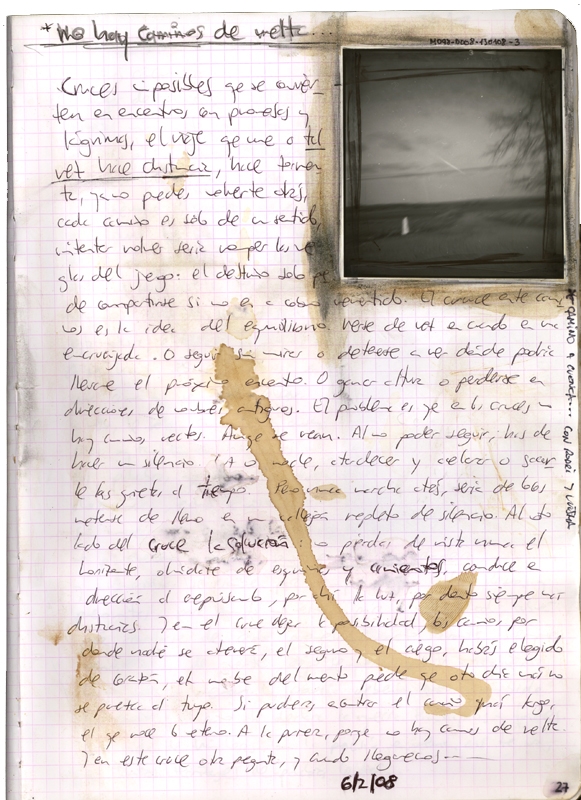 * No hay caminos de vuelta...
M092-0008-130408-3
Cruces imposibles que se convier
ten en encuentros con promesas y
lágrimas, el viaje que une o tal
vez hace distancia, hace tormen
ta, ya no puedes volverte atrás,
cada camino es solo de un sentido,
intentar volver sería romper las re
glas del juego: el destino solo pe
de compartirse si no es a cobrar convertido. El cruce entre cami
nos es la idea del equilibrio, verse de vez en cuando en una
encrucijada. O seguir sin mirar o detenerse a ver dónde podría
llevarme el próximo encuentro. O ganar altura o perderse en
direcciones de nombres antiguos. El problema es que en los cruces no
hay caminos rectos. Aunque se vean. Al no poder seguir, has de
hacer un silencio. a nadie, atardecer y acelerar o sacar
le las grietas al tiempo. Pero nunca marcha atrás, sería de
meterse de lleno en un callejón repleto de silencio. Al otro
lado del cruce la solución: no perder de vista nunca el
horizonte, olvídate de esquinas y cimientos, conduce en
dirección al crepúsculo, por ahí la luz, por dentro siempre hay
distancias. Y en el cruce dejar la posibilidad, los caminos por
donde nadie se atreverá, el seguro y el ciego, habrás elegido
de corazón, el nombre del miento puede que otro día más no
se parezca al tuyo. Si pudieras, encontrar el camino más largo,
el que roce lo eterno. A la pureza, porque no hay caminos de vuelta.
Y en este cruce otra pregunta, y cuándo llegaremos...
DE CAMINO a cuenca... CON RODRI Y
6/2/08
27